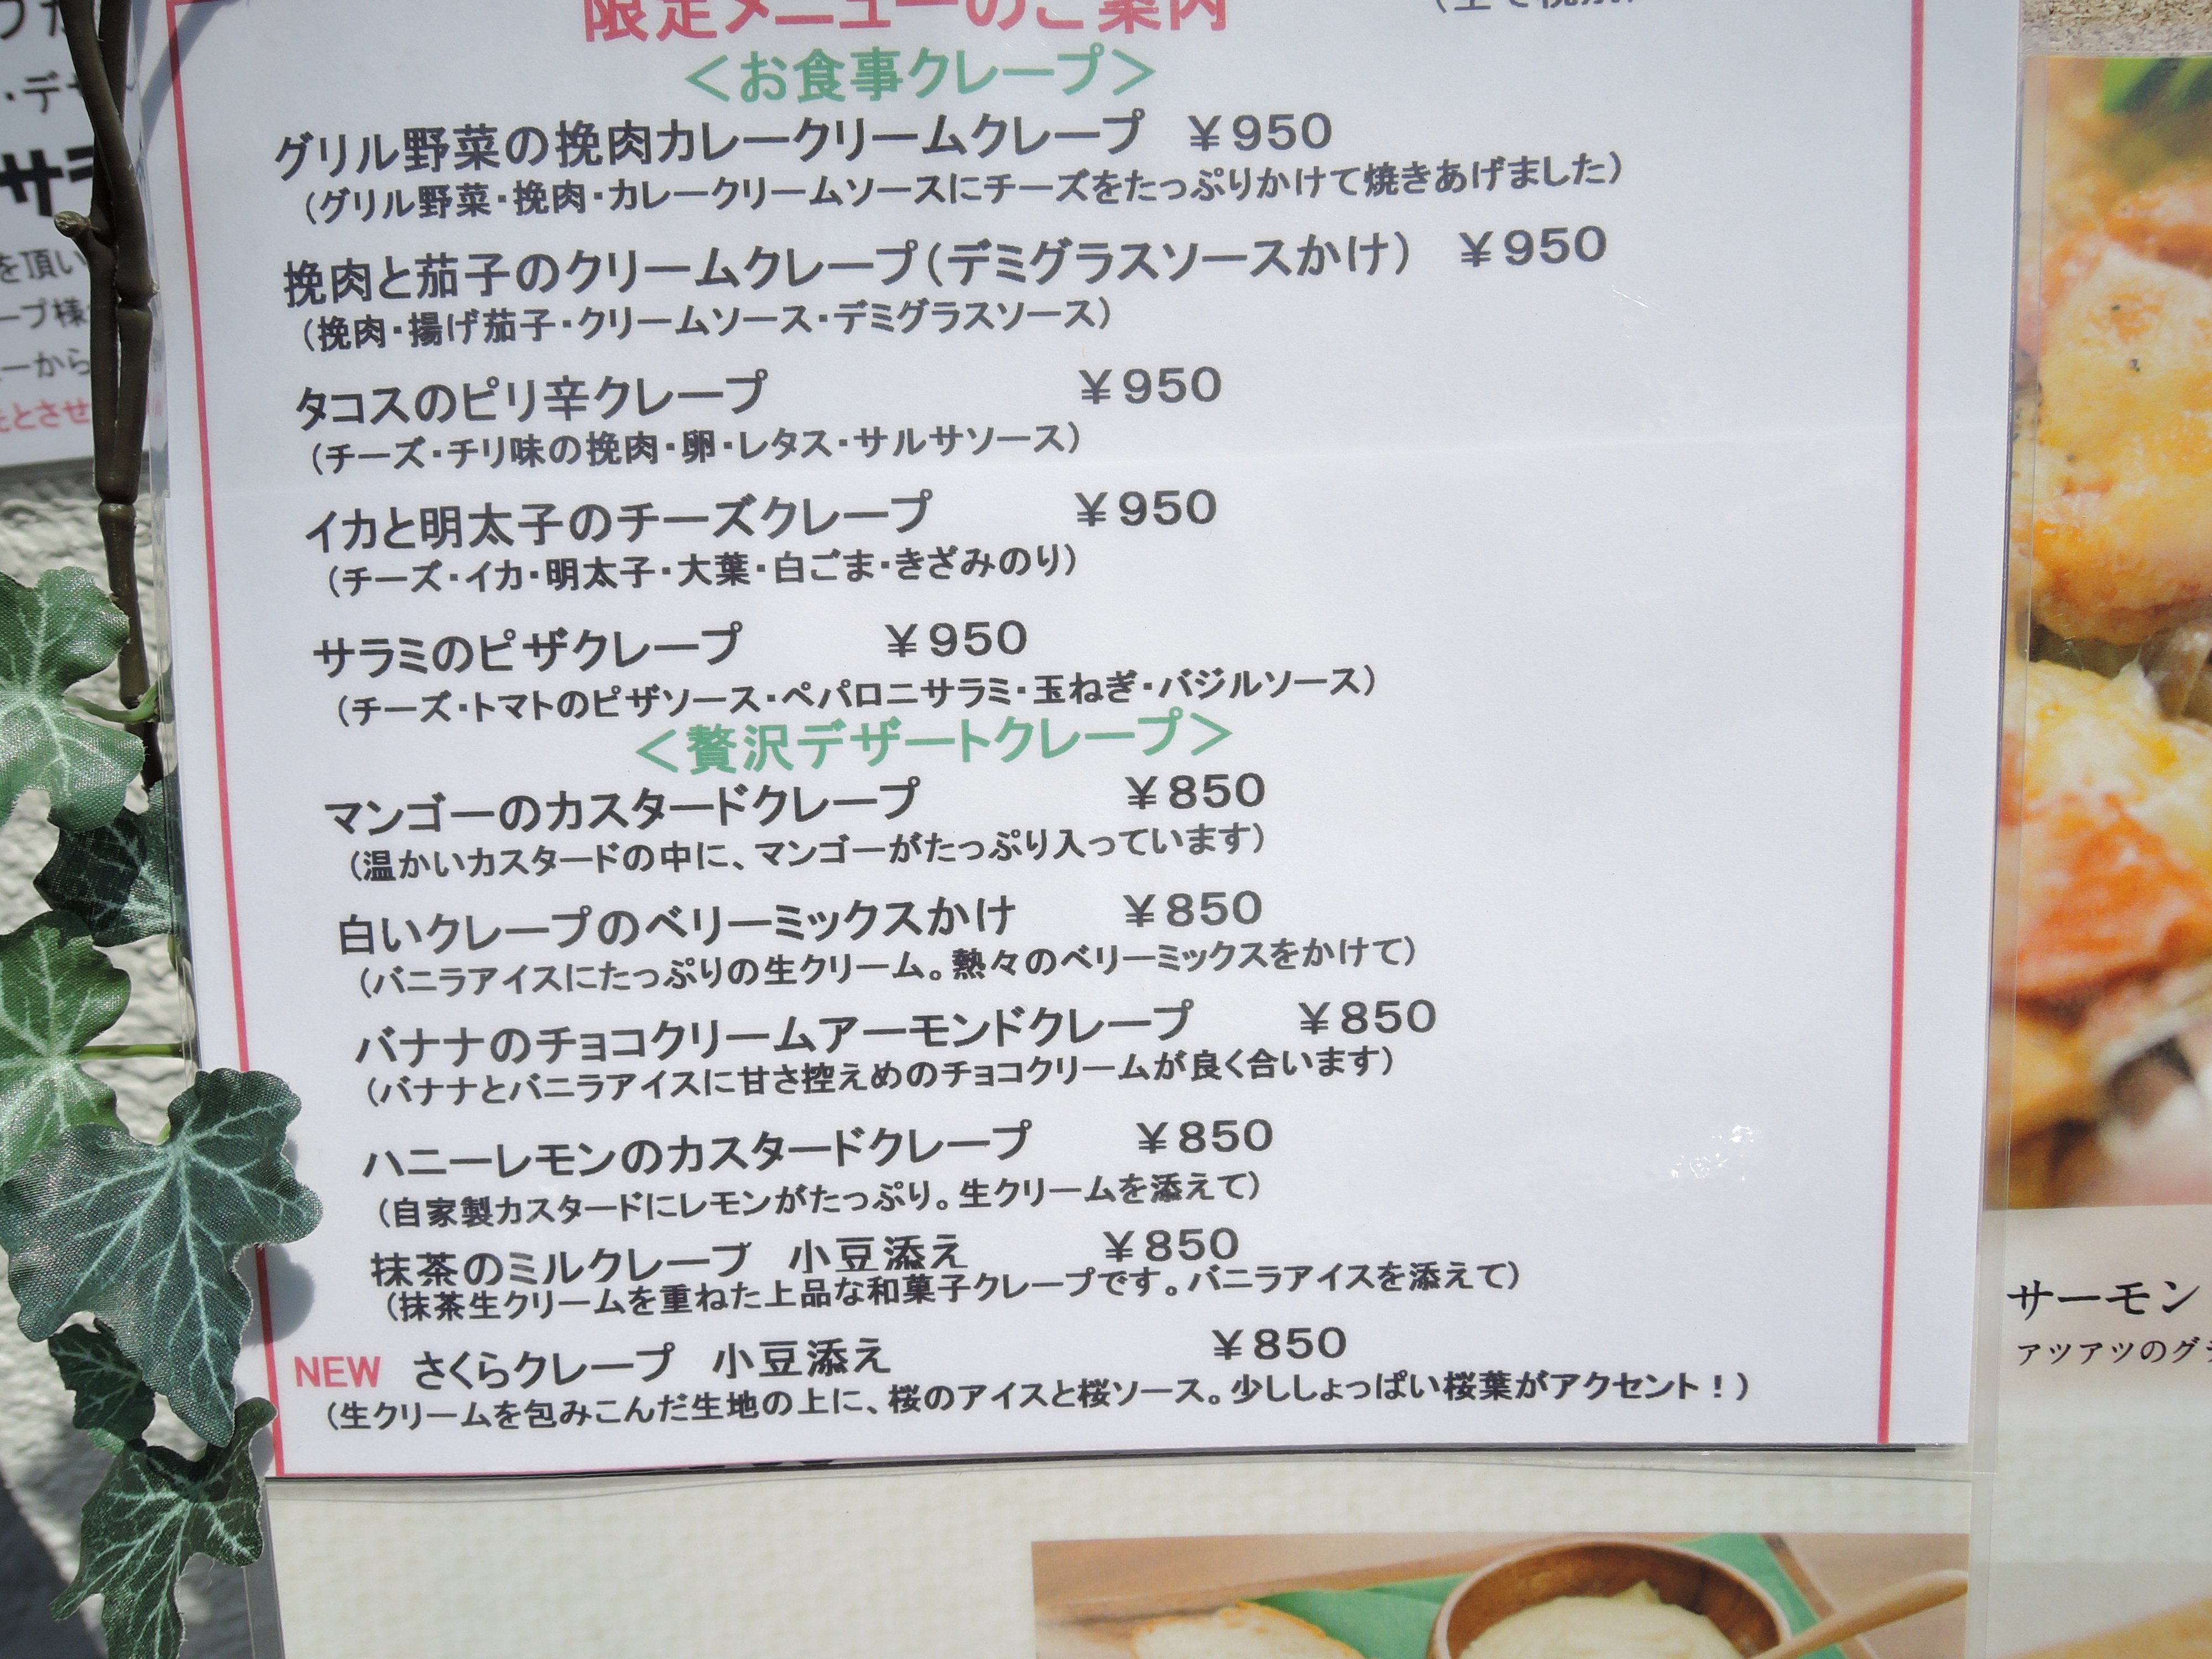 限定メニューのご案内
＜お食事クレープ＞
グリル野菜の挽肉カレークリームクレープ ￥950
（グリル野菜・挽肉・カレークリームソースにチーズをたっぷりかけて焼きあげました）
挽肉と茄子のクリームクレープ（デミグラスソースかけ） ￥950
（挽肉・揚げ茄子・クリームソース・デミグラスソース）
タコスのピリ辛クレープ ￥950
（チーズ・チリ味の挽肉・卵・レタス・サルサソース）
イカと明太子のチーズクレープ ￥950
（チーズ・イカ・明太子・大葉・白ごま・きざみのり）
サラミのピザクレープ ￥950
（チーズ・トマトのピザソース・ペパロニサラミ・玉ねぎ・バジルソース）
＜贅沢デザートクレープ＞
マンゴーのカスタードクレープ ￥850
（温かいカスタードの中に、マンゴーがたっぷり入っています）
白いクレープのベリーミックスかけ ￥850
（バニラアイスにたっぷりの生クリーム。熱々のベリーミックスをかけて）
バナナのチョコクリームアーモンドクレープ ￥850
（バナナとバニラアイスに甘さ控えめのチョコクリームが良く合います）
ハニーレモンのカスタードクレープ ￥850
（自家製カスタードにレモンがたっぷり。生クリームを添えて）
抹茶のミルクレープ 小豆添え ￥850
（抹茶生クリームを重ねた上品な和菓子クレープです。バニラアイスを添えて）
NEW さくらクレープ 小豆添え ￥850
（生クリームを包みこんだ生地の上に、桜のアイスと桜ソース。少ししょっぱい桜葉がアクセント！）
を頂い
ープ様
ーから
とさせ
サーモン
アツアツのグ